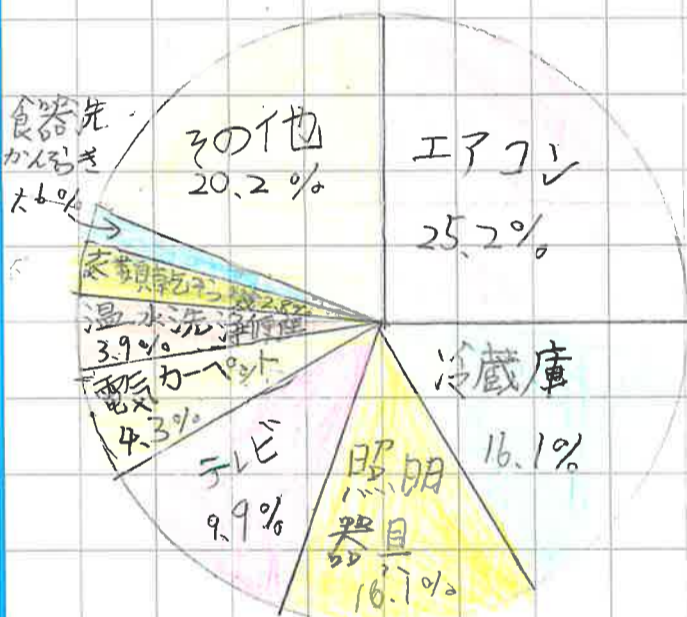 エアコン
25.2%
冷蔵庫
16.1%
照明
器具
16.1%
テレビ
9.9%
電気カーペット
4.3%
温水洗浄便座
3.9%
衣類乾
2.8%
食器洗
かんそうき
1.6%
その他
20.2%